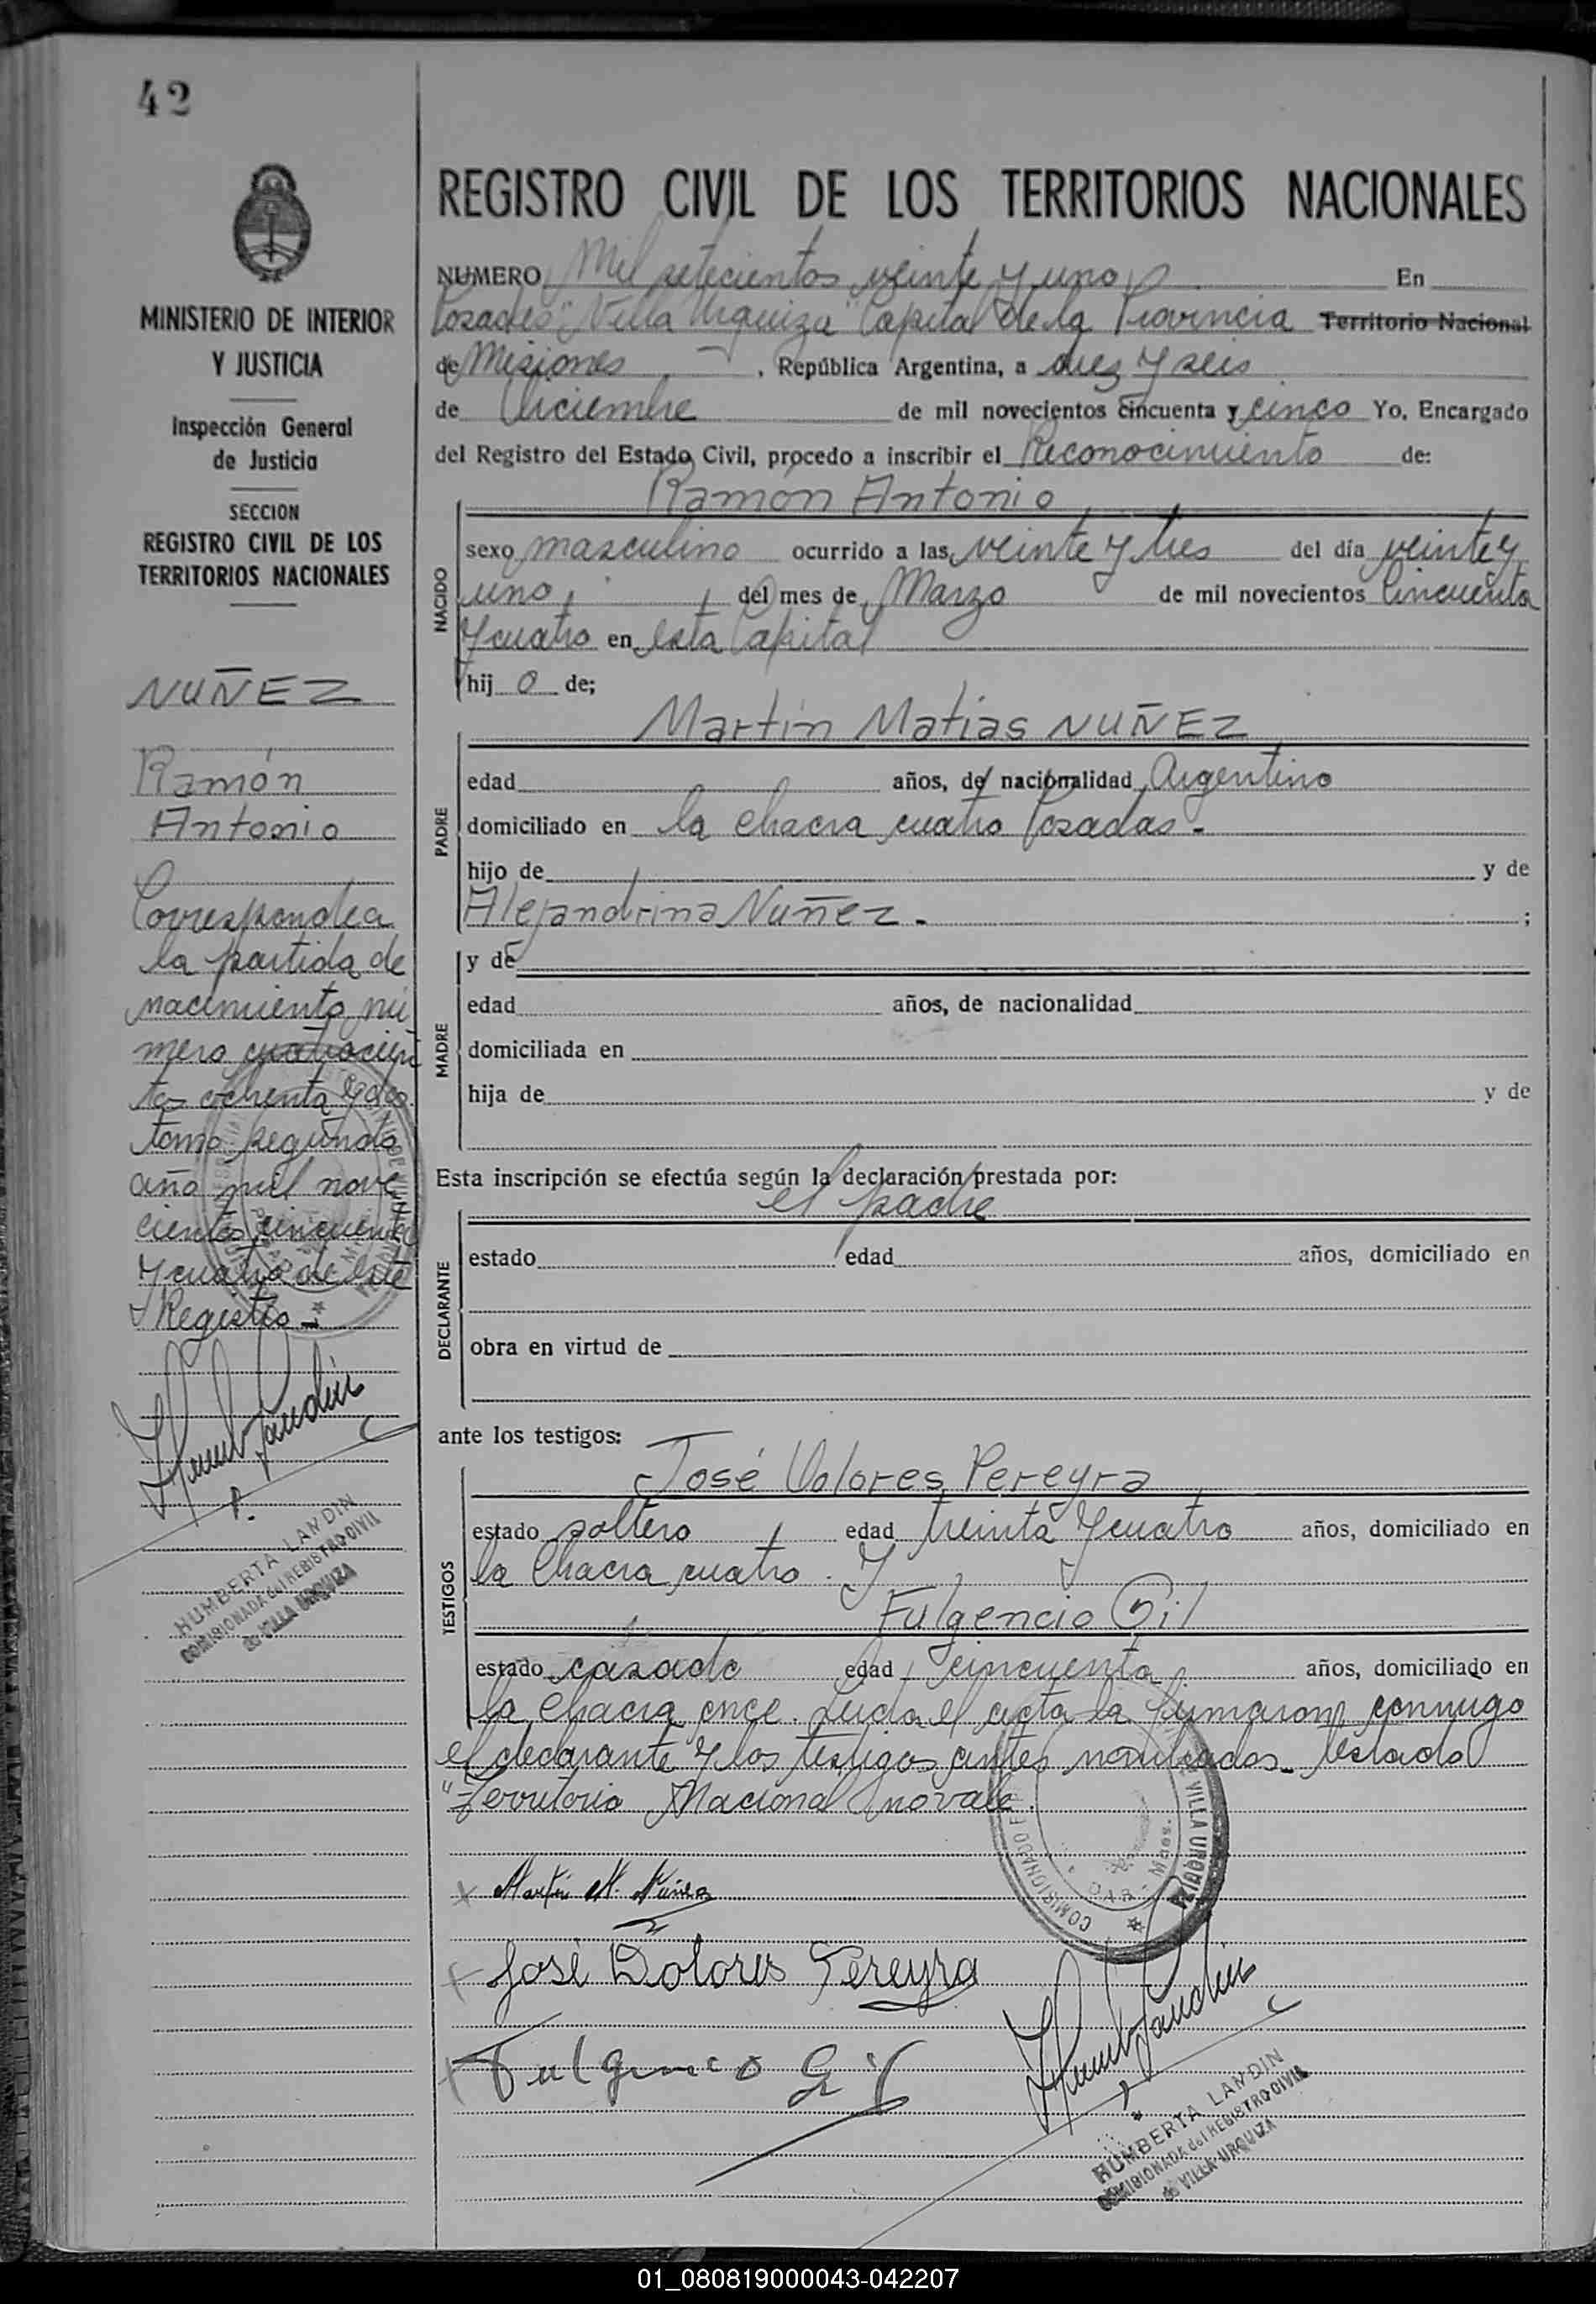 42
MINISTERIO DE INTERIOR
Y JUSTICIA
Inspección General
de Justicia
SECCION
REGISTRO CIVIL DE LOS
TERRITORIOS NACIONALES
NUÑEZ
Ramón
Antonio
Corresponde a
la partida de
nacimiento nú
mero cuatrocien
tos ochenta y dos
tomo segundo
año mil nove
cientos cincuenta
y cuatro de este
Registro -
P.
HUMBERTA LANDIN
COMISIONADA del REGISTRO CIVIL
de VILLA URQUIZA
REGISTRO CIVIL DE LOS TERRITORIOS NACIONALES
NUMERO Mil setecientos veinte y uno En
Posadas "Villa Urquiza" Capital de la Provincia Territorio Nacional
de Misiones, República Argentina, a diez y seis
de Diciembre de mil novecientos cincuenta y cinco Yo, Encargado
del Registro del Estado Civil, procedo a inscribir el Reconocimiento de:
Ramón Antonio
NACIDO
sexo masculino ocurrido a las veinte y tres del día veinte y
uno del mes de Marzo de mil novecientos Cincuenta
y cuatro en esta Capital
hij o de;
Martín Matias NUÑEZ
PADRE
edad años, de nacionalidad Argentino
domiciliado en la chacra cuatro Posadas -
hijo de y de
Alejandrina Nuñez - ;
MADRE
y de
edad años, de nacionalidad
domiciliada en
hija de y de
Esta inscripción se efectúa según la declaración prestada por:
el padre
DECLARANTE
estado edad años, domiciliado en
obra en virtud de
ante los testigos:
José Dolores Pereyra
TESTIGOS
estado soltero edad treinta y cuatro años, domiciliado en
la Chacra cuatro. y
Fulgencio Gil
estado casado edad cincuenta años, domiciliado en
la Chacra once. Leida el acta la firmaron conmigo
el declarante y los testigos antes nombrados. Testado
"Territorio Nacional" no vale.
COMISIONADO VILLA URQUIZA
Martín M. Núñez
José Dolores Pereyra
Fulgencio Gil
HUMBERTA LANDIN
COMISIONADA del REGISTRO CIVIL
de VILLA URQUIZA
01_080819000043-042207